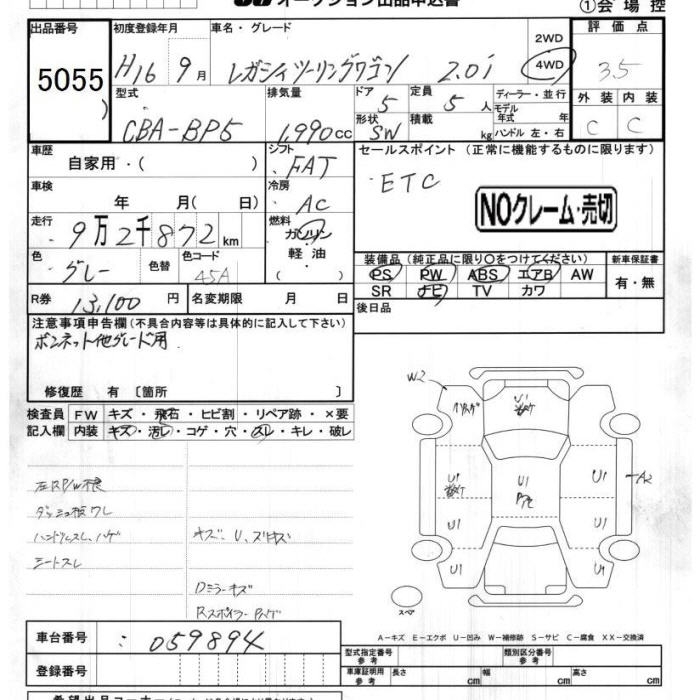 オークション出品申込書
①会場控
出品番号 初度登録年月 車名・グレード 評価点
5055 H16 9月 レガシィツーリングワゴン 2.0i 2WD 4WD 3.5
型式 排気量 ドア 定員 ディーラー・並行 外装 内装
CBA-BP5 1,990cc 5 5人 モデル年式 年 C C
形状 SW 積載 kg ハンドル 左・右
車歴 シフト セールスポイント (正常に機能するものに限ります)
自家用・( ) FAT ETC
車検 冷房
年 月( 日) AC NOクレーム・売切
走行 燃料
9万2千872km ガソリン
色 色替 色コード 軽油 装備品(純正品に限り○をつけてください) 新車保証書
グレー 45A ( ) PS PW ABS エアB AW 有・無
SR ナビ TV カワ
R券 13,100円 名変期限 月 日 後日品
注意事項申告欄(不具合内容等は具体的に記入して下さい)
ボンネット他グレード用
修復歴 有 〔箇所 〕
検査員 FW キズ・飛石・ヒビ割・リペア跡・×要
記入欄 内装 キズ・汚レ・コゲ・穴・スレ・キレ・破レ
W2
U1
U1 U1 U1 A2
U1 U1
U1 U1
ハンドルスレ、ハゲ キズ、U、スリキズ
シートスレ
Dミラーキズ
スペア
A-キズ E-エクボ U-凹み W-補修跡 S-サビ C-腐食 XX-交換済
車台番号 : 059894
型式指定番号 参考 類別区分番号 参考
登録番号 車庫証明用 参考 長さ cm 幅 cm 高さ cm